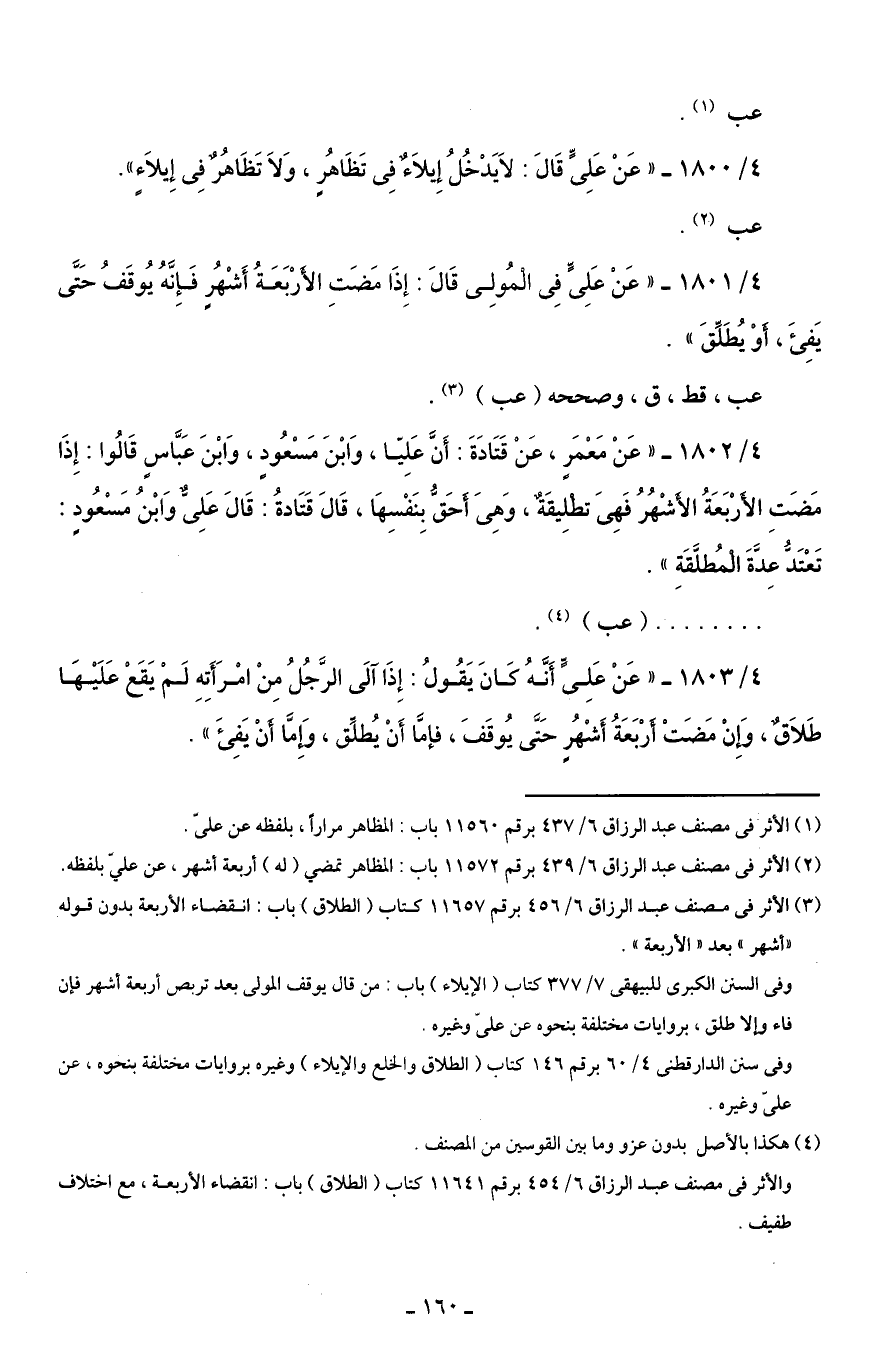 عب (١) .
٤/ ١٨٠٠ ـ « عَنْ عَلِىٍّ قَالَ : لاَيَدْخُلُ إِيلاَءٌ فِى تَظَاهُرٍ ، وَلاَ تَظَاهُرٌ فِى إِيلاَءٍ».
عب (٢) .
٤/ ١٨٠١ ـ « عَنْ عَلِىٍّ فِى الْمُولِى قَالَ : إِذَا مَضَتِ الأَرْبَعَةُ أَشْهُرٍ فَإِنَّهُ يُوقَفُ حَتَّى
يَفِئَ ، أَوْ يُطَلِّقَ » .
عب ، قط ، ق ، وصححه ( عب ) (٣) .
٤/ ١٨٠٢ ـ « عَنْ مَعْمَرٍ ، عَنْ قَتَادَةَ : أَنَّ عَلِيّا ، وَابْنَ مَسْعُودٍ ، وَابْنَ عَبَّاسٍ قَالُوا : إِذَا
مَضَتِ الأَرْبَعَةُ الأَشْهُرُ فَهِىَ تطْلِيقَةٌ ، وَهِىَ أَحَقُّ بِنَفْسِهَا ، قَالَ قَتَادةُ : قَالَ عَلِىٌّ وَابْنُ مَسْعُودٍ :
تَعْتَدُّ عِدَّةَ الْمُطلَّقَةِ » .
. . . . . . . . ( عب ) (٤) .
٤/ ١٨٠٣ ـ « عَنْ عَلِىٍّ أَنَّهُ كَانَ يَقُولُ : إِذَا آلَى الرَّجُلُ مِنْ امْرَأَتِهِ لَمْ يَقَعْ عَلَيْهَا
طَلاَقٌ ، وَإِنْ مَضَتْ أَرْبَعَةُ أَشْهُرٍ حَتَّى يُوقَفَ ، فإمَّا أَنْ يُطلِّق ، وَإِمَّا أَنْ يَفِئَ » .
(١) الأثر فى مصنف عبد الرزاق ٦/ ٤٣٧ برقم ١١٥٦٠ باب : المظاهر مراراً ، بلفظه عن علىّ .
(٢) الأثر فى مصنف عبد الرزاق ٦/ ٤٣٩ برقم ١١٥٧٢ باب : المظاهر تمضي ( له ) أربعة أشهر ، عن علىّ بلفظه.
(٣) الأثر فى مصنف عبد الرزاق ٦/ ٤٥٦ برقم ١١٦٥٧ كتاب ( الطلاق ) باب : انقضاء الأربعة بدون قوله
«أشهر » بعد « الأربعة » .
وفى السنن الكبرى للبيهقى ٧/ ٣٧٧ كتاب ( الإيلاء ) باب : من قال يوقف المولى بعد تربص أربعة أشهر فإن
فاء وإلا طلق ، بروايات مختلفة بنحوه عن علىّ وغيره .
وفى سنن الدارقطنى ٤/ ٦٠ برقم ١٤٦ كتاب ( الطلاق والخلع والإيلاء ) وغيره بروايات مختلفة بنحوه ، عن
علىّ وغيره .
(٤) هكذا بالأصل بدون عزو وما بين القوسين من المصنف .
والأثر فى مصنف عبد الرزاق ٦/ ٤٥٤ برقم ١١٦٤١ كتاب ( الطلاق ) باب : انقضاء الأربعة ، مع اختلاف
طفيف .
ـ ١٦٠ ـ